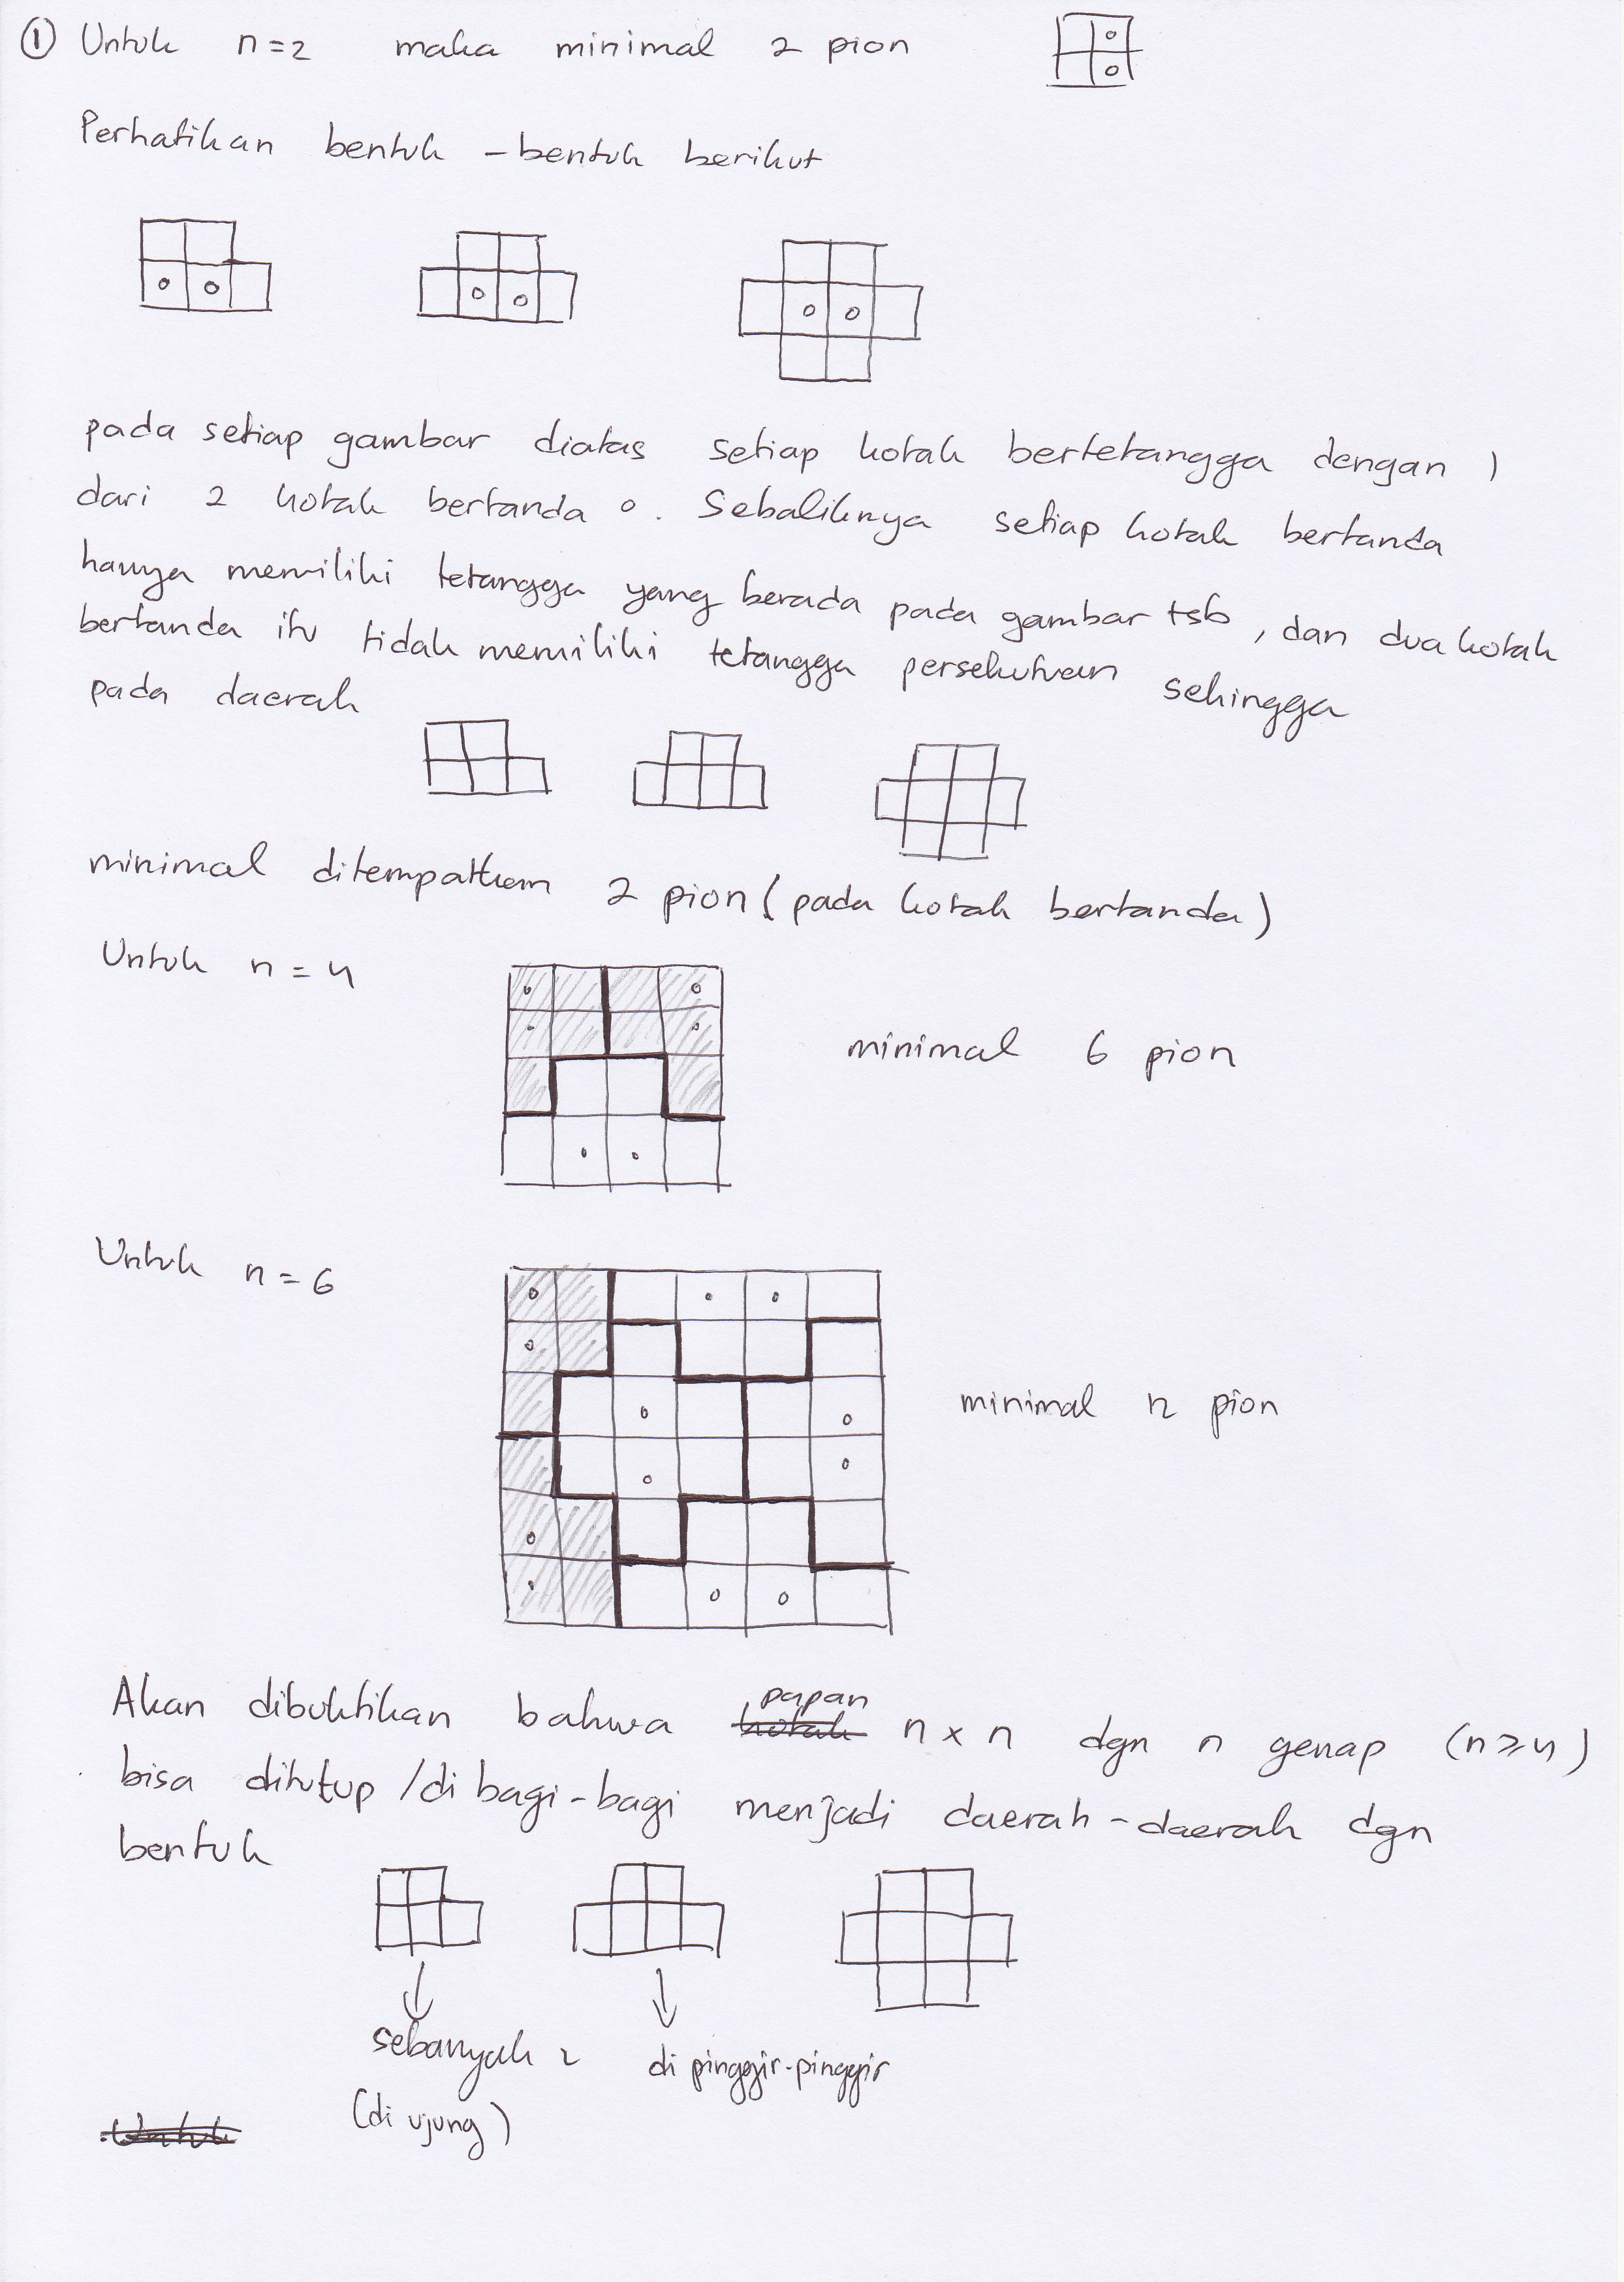 ① Untuk n=2 maka minimal 2 pion
Perhatikan bentuk-bentuk berikut
pada setiap gambar diatas setiap kotak bertetangga dengan 1
dari 2 kotak bertanda o. Sebaliknya setiap kotak bertanda
hanya memiliki tetangga yang berada pada gambar tsb, dan dua kotak
bertanda itu tidak memiliki tetangga persekutuan sehingga
pada daerah
minimal ditempatkan 2 pion (pada kotak bertanda)
Untuk n = 4
minimal 6 pion
Untuk n = 6
minimal 12 pion
Akan dibuktikan bahwa papan n x n dgn n genap (n≥4)
bisa ditutup/dibagi-bagi menjadi daerah-daerah dgn
bentuk
sebanyak 2 di pinggir-pinggir
(di ujung)